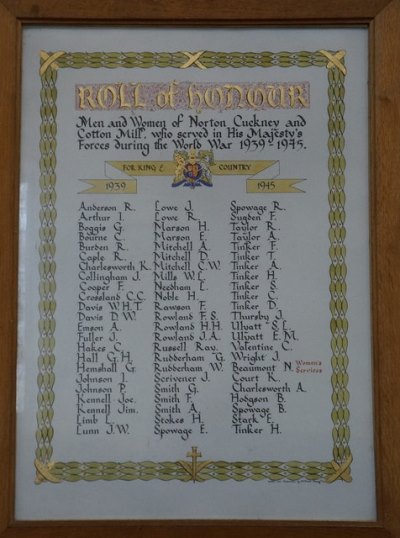 ROLL of HONOUR
Men and Women of Norton Cuckney and
Cotton Mill, who served in His Majesty's
Forces during the World War 1939-1945.
FOR KING & COUNTRY
1939 1945
Anderson R.
Arthur I.
Boggis G.
Bourne C.
Burden R.
Caple R.
Charlesworth K.
Collingham J.
Cooper F.
Crossland C.C.
Davis W.H.T.
Davis D.W.
Emson A.
Fuller J.
Hakes C.
Hall G.H.
Hemshall G.
Johnson I.
Johnson P.
Kennell Joe.
Kennell Jim.
Limb L.
Lunn J.W.
Lowe J.
Lowe R.
Marson H.
Marson E.
Mitchell A.
Mitchell D.
Mitchell C.W.
Mills W.E.
Needham L.
Noble H.
Rawson F.
Rowland F.S.
Rowland H.H.
Rowland J.A.
Russell Ray.
Rudderham G.
Rudderham W.
Scrivener J.
Smith G.
Smith F.
Smith A.
Stokes H.
Spowage E.
Spowage R.
Sugden F.
Taylor R.
Taylor A.
Tinker F.
Tinker T.
Tinker A.
Tinker H.
Tinker S.
Tinker C.
Tinker D.
Thursby J.
Ulyatt S.E.
Ulyatt E.M.
Valentine C.
Wright J.
Women's
Services
Beaumont N.
Court K.
Charlesworth A.
Hodgson B.
Spowage B.
Stark E.
Tinker H.